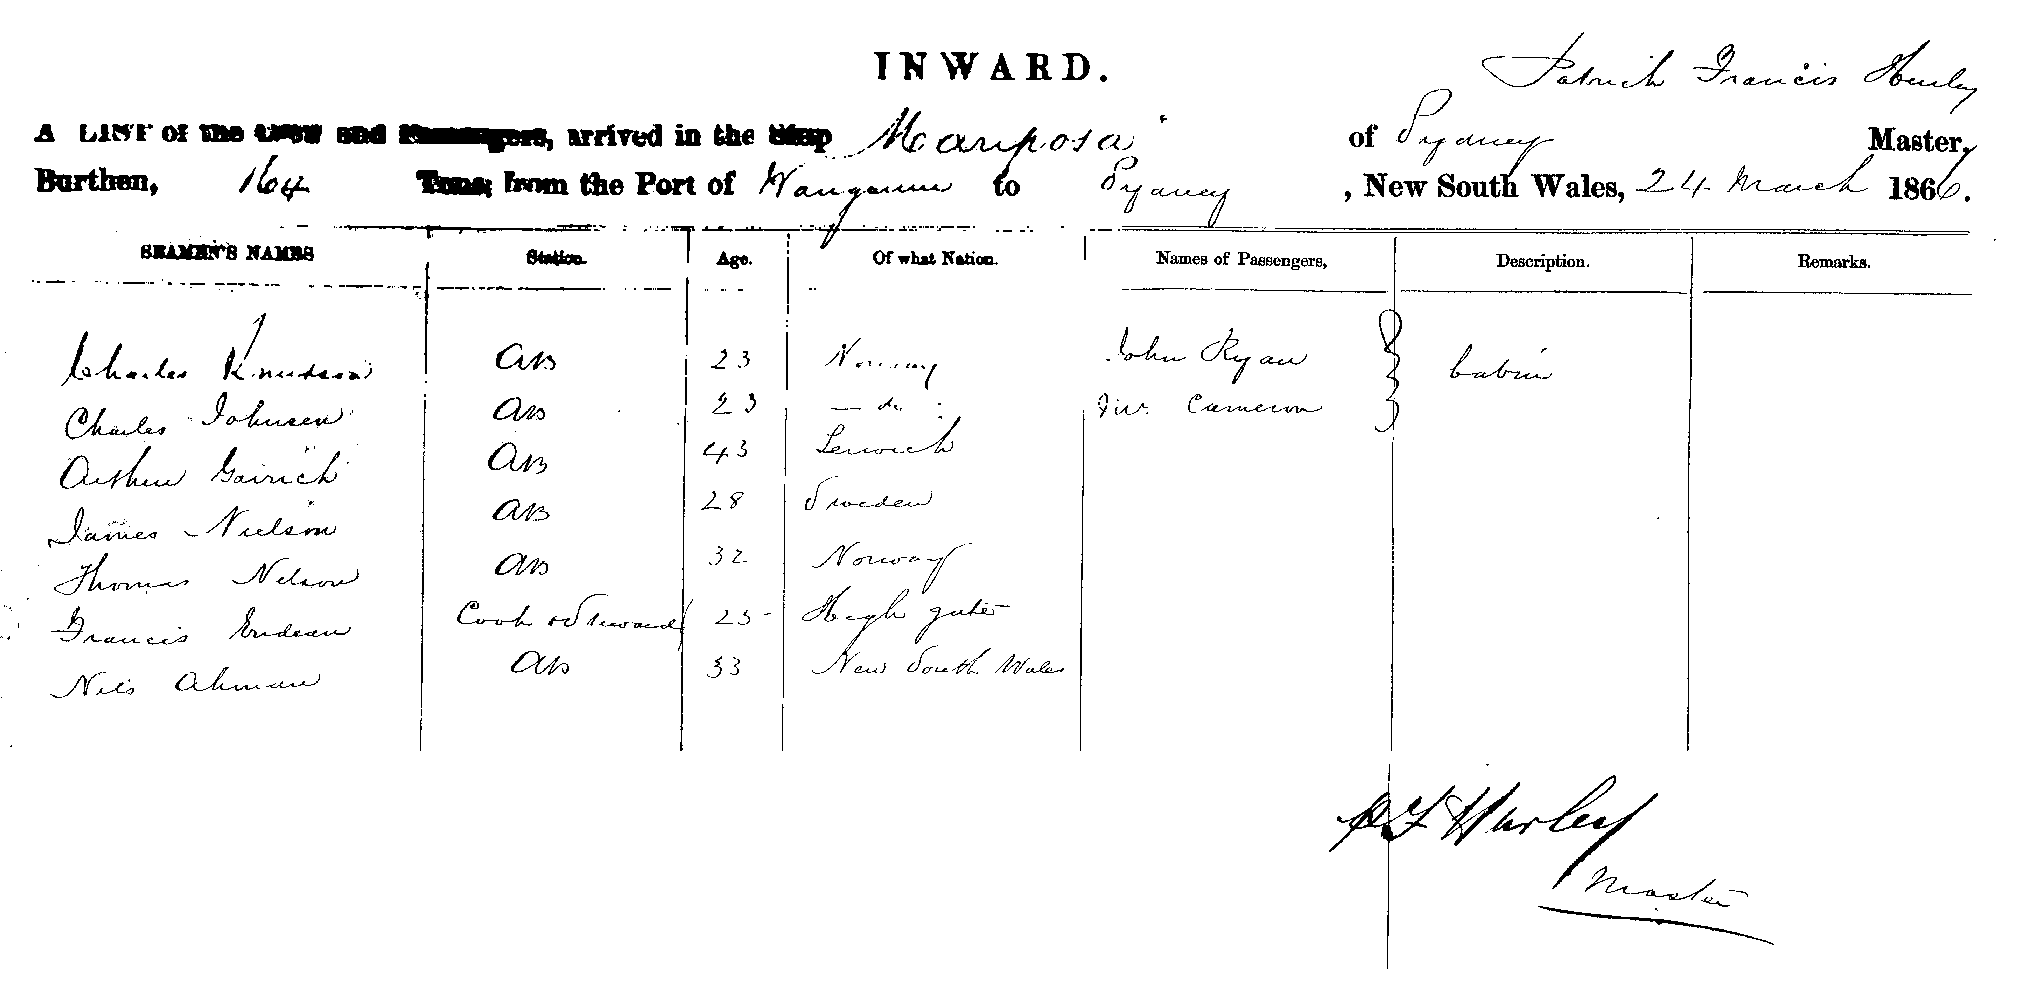 INWARD.
Patrick Francis Hurley
A LIST of the Crew and Passengers, arrived in the Ship Mariposa of Sydney Master,
Burthen, 164 Tons, from the Port of Wanganui to Sydney, New South Wales, 24 March 1866.
SEAMEN'S NAMES Station. Age. Of what Nation. Names of Passengers, Description. Remarks.
Charles Knudson AB 23 Norway John Ryan Cabin
Charles Johnsen AB 23 — do Cameron
Arthur AB 43 Lerwick
James Nielson AB 28 Sweden
Thomas Nelson AB 32 Norway
Francis Endean Cook & Steward 25 High gate
Nils Ahman AB 33 New South Wales
P F Hurley
Master